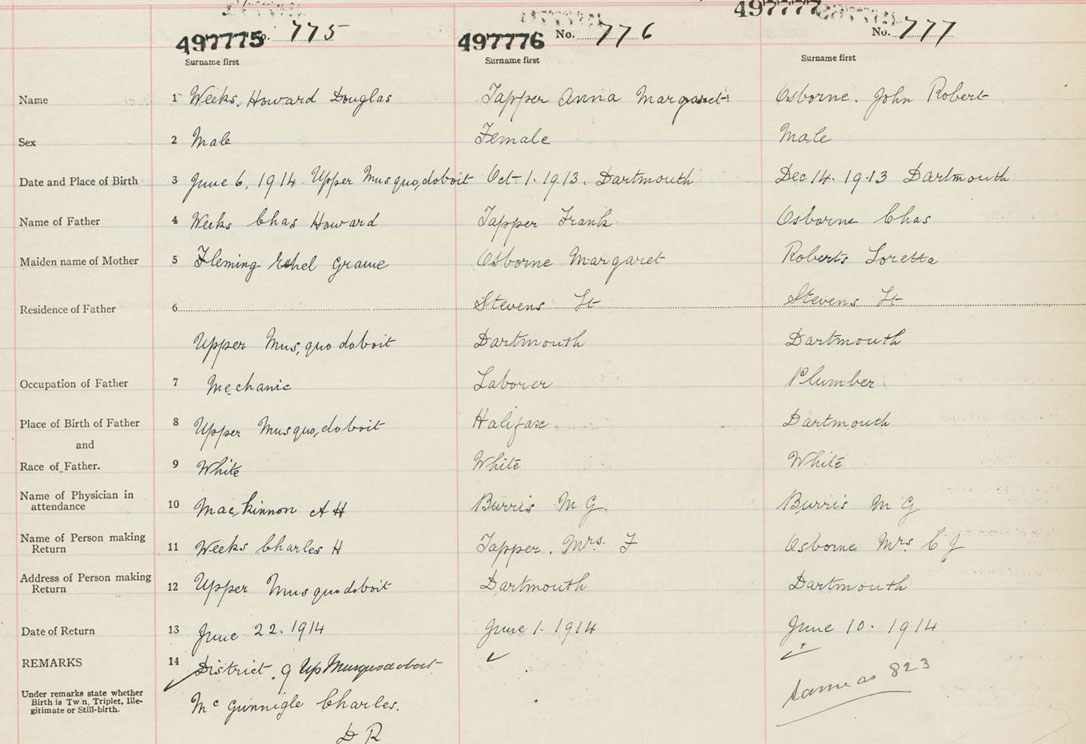 497775 No. 775 497776 No. 776 497777 No. 777
Surname first Surname first Surname first
Name 1 Weeks, Howard Douglas Tapper Anna Margaret Osborne. John Robert
Sex 2 Male Female Male
Date and Place of Birth 3 June 6, 1914 Upper Musquodoboit Oct 1. 1913. Dartmouth Dec 14. 1913 Dartmouth
Name of Father 4 Weeks Chas Howard Tapper Frank Osborne Chas
Maiden name of Mother 5 Fleming Ethel Osborne Margaret Roberts Loretta
Residence of Father 6 Stevens St Stevens St
Upper Musquodoboit Dartmouth Dartmouth
Occupation of Father 7 Mechanic Laborer Plumber
Place of Birth of Father 8 Upper Musquodoboit Halifax Dartmouth
and
Race of Father. 9 White White White
Name of Physician in
attendance 10 MacKinnon A H Burris M G Burris M G
Name of Person making
Return 11 Weeks Charles H Tapper. Mrs. F Osborne Mrs C J
Address of Person making
Return 12 Upper Musquodoboit Dartmouth Dartmouth
Date of Return 13 June 22. 1914 June 1. 1914 June 10. 1914
REMARKS 14 District 9 Up Musquodoboit
Under remarks state whether
Birth is Twin, Triplet, Ille-
gitimate or Still-birth.
McGunnigle Charles.
D R
same as 823